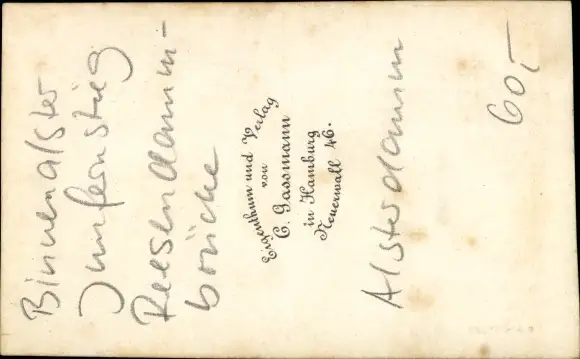 Binnenalster
Jungfernstieg
Reesendamm-
brücke
Eigenthum und Verlag
von
C. Gassmann
in Hamburg
Neuerwall 46.
Alsterdamm
60,-